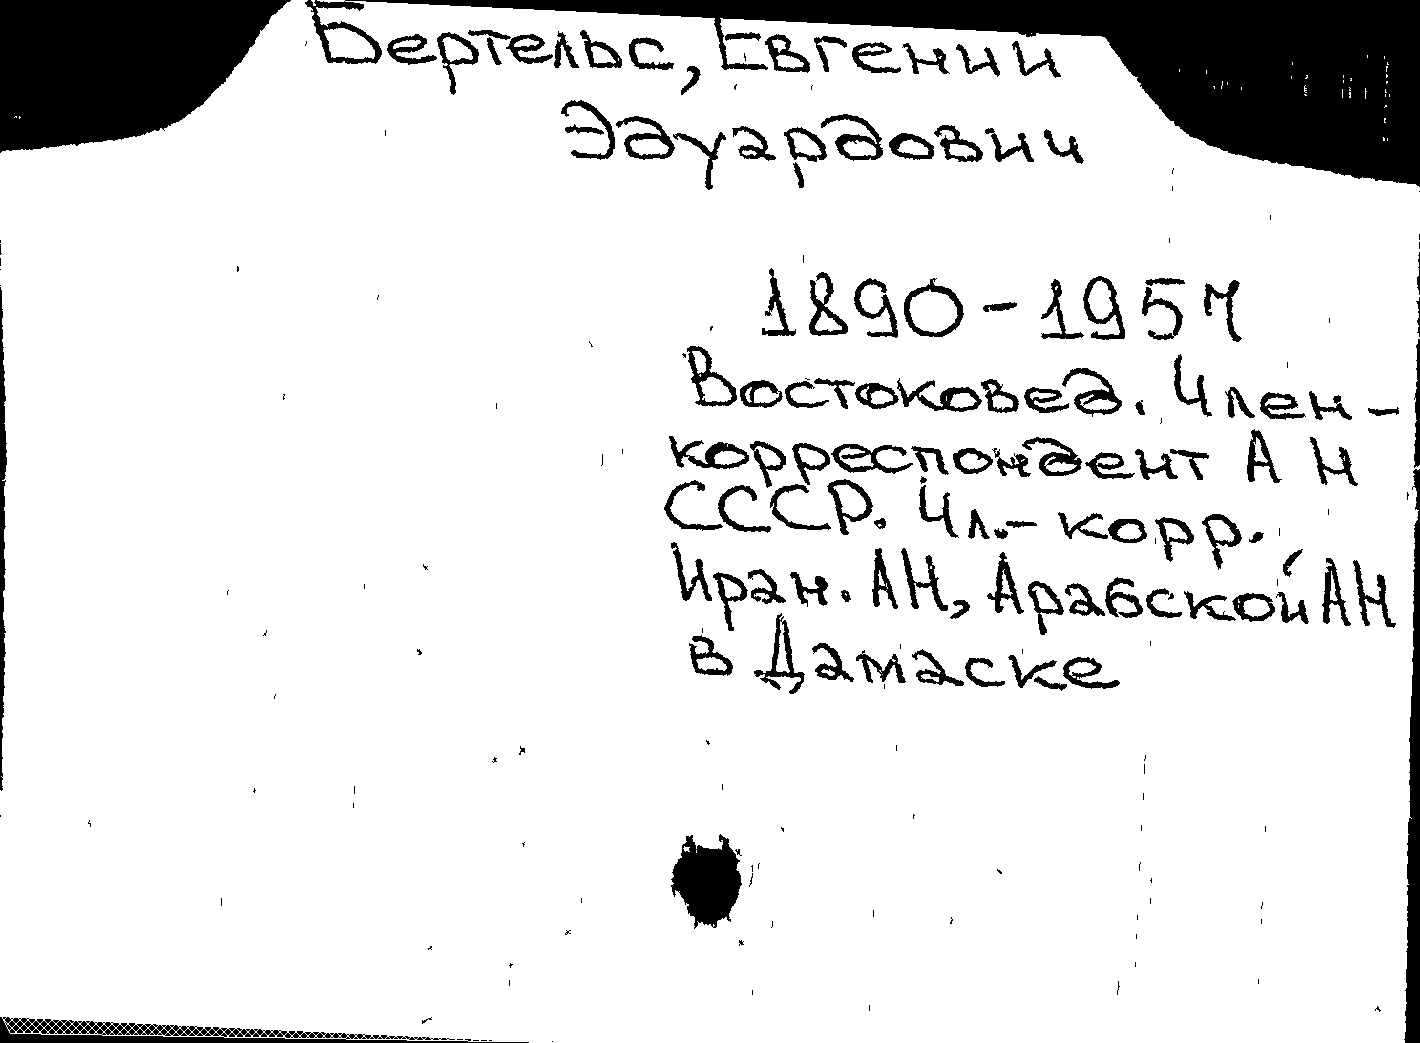 Бертельс, Евгений
Эдуардович
1890-1957
Востоковед. Член-
корреспондент АН
СССР. Чл.-корр.
Иран. АН, Арабской АН
в Дамаске